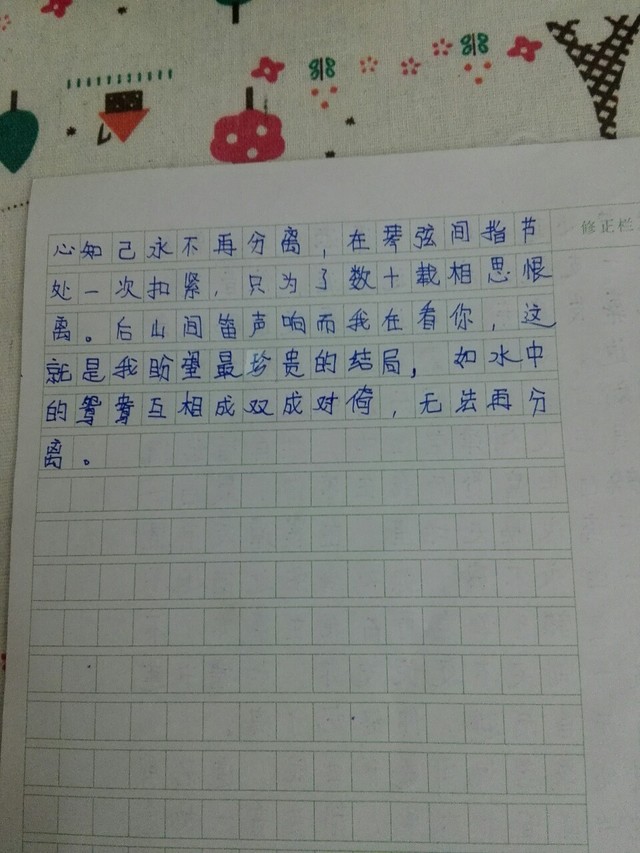 修正栏
心知己永不再分离，在琴弦间指节
处一次扣紧，只为了数十载相思恨
离。后山间笛声响而我在看你，这
就是我盼望最珍贵的结局，如水中
的鸳鸯互相成双成对倚，无法再分
离。